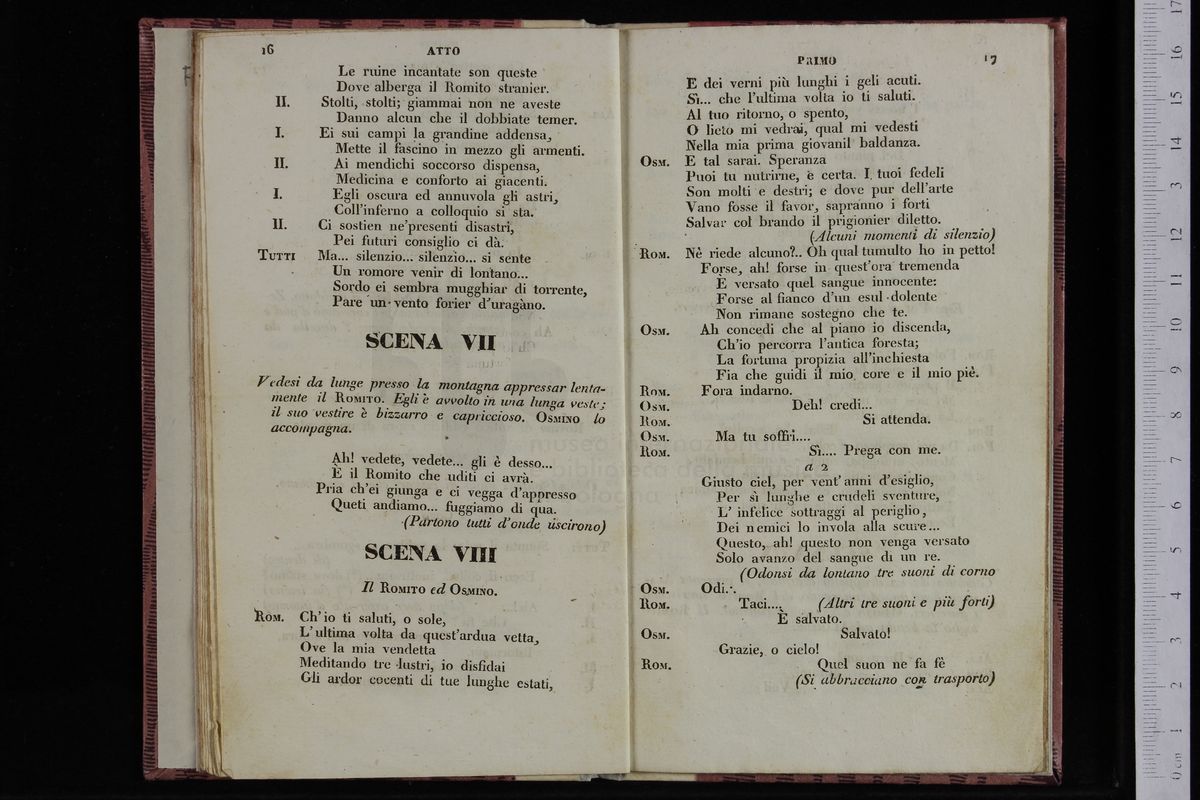 16
ATTO
Le ruine incantate son queste
Dove alberga il Romito stranier.
II. Stolti, stolti; giammai non ne aveste
Danno alcun che il dobbiate temer.
I. Ei sui campi la grandine addensa,
Mette il fascino in mezzo gli armenti.
II. Ai mendichi soccorso dispensa,
Medicina e conforto ai giacenti.
I. Egli oscura ed annuvola gli astri,
Coll'inferno a colloquio si sta.
II. Ci sostien ne'presenti disastri,
Pei futuri consiglio ci dà.
TUTTI Ma... silenzio... silenzio... si sente
Un romore venir di lontano...
Sordo ei sembra mugghiar di torrente,
Pare un vento forier d'uragàno.
SCENA VII
Vedesi da lunge presso la montagna appressar lenta-
mente il ROMITO. Egli è avvolto in una lunga veste;
il suo vestire è bizzarro e capriccioso. OSMINO lo
accompagna.
Ah! vedete, vedete... gli è desso...
E il Romito che uditi ci avrà.
Pria ch'ei giunga e ci vegga d'appresso
Queti andiamo... fuggiamo di qua.
(Partono tutti d'onde uscirono)
SCENA VIII
Il ROMITO ed OSMINO.
ROM. Ch'io ti saluti, o sole,
L'ultima volta da quest'ardua vetta,
Ove la mia vendetta
Meditando tre lustri, io disfidai
Gli ardor cocenti di tue lunghe estati,
PRIMO
17
E dei verni più lunghi i geli acuti.
Sì... che l'ultima volta io ti saluti.
Al tuo ritorno, o spento,
O lieto mi vedrai, qual mi vedesti
Nella mia prima giovanil baldanza.
OSM. E tal sarai. Speranza
Puoi tu nutrirne, è certa. I tuoi fedeli
Son molti e destri; e dove pur dell'arte
Vano fosse il favor, sapranno i forti
Salvar col brando il prigionier diletto.
(Alcuni momenti di silenzio)
ROM. Nè riede alcuno?.. Oh qual tumulto ho in petto!
Forse, ah! forse in quest'ora tremenda
È versato quel sangue innocente:
Forse al fianco d'un esul dolente
Non rimane sostegno che te.
OSM. Ah concedi che al piano io discenda,
Ch'io percorra l'antica foresta;
La fortuna propizia all'inchiesta
Fia che guidi il mio core e il mio piè.
ROM. Fora indarno.
OSM. Deh! credi...
ROM. Si attenda.
OSM. Ma tu soffri....
ROM. Sì.... Prega con me.
a 2
Giusto ciel, per vent'anni d'esiglio,
Per sì lunghe e crudeli sventure,
L' infelice sottraggi al periglio,
Dei nemici lo invola alla scure...
Questo, ah! questo non venga versato
Solo avanzo del sangue di un re.
(Odonsi da lontano tre suoni di corno
OSM. Odi..
ROM. Taci.... (Altri tre suoni e più forti)
È salvato.
OSM. Salvato!
Grazie, o cielo!
ROM. Quel suon ne fa fè
(Si abbracciano con trasporto)